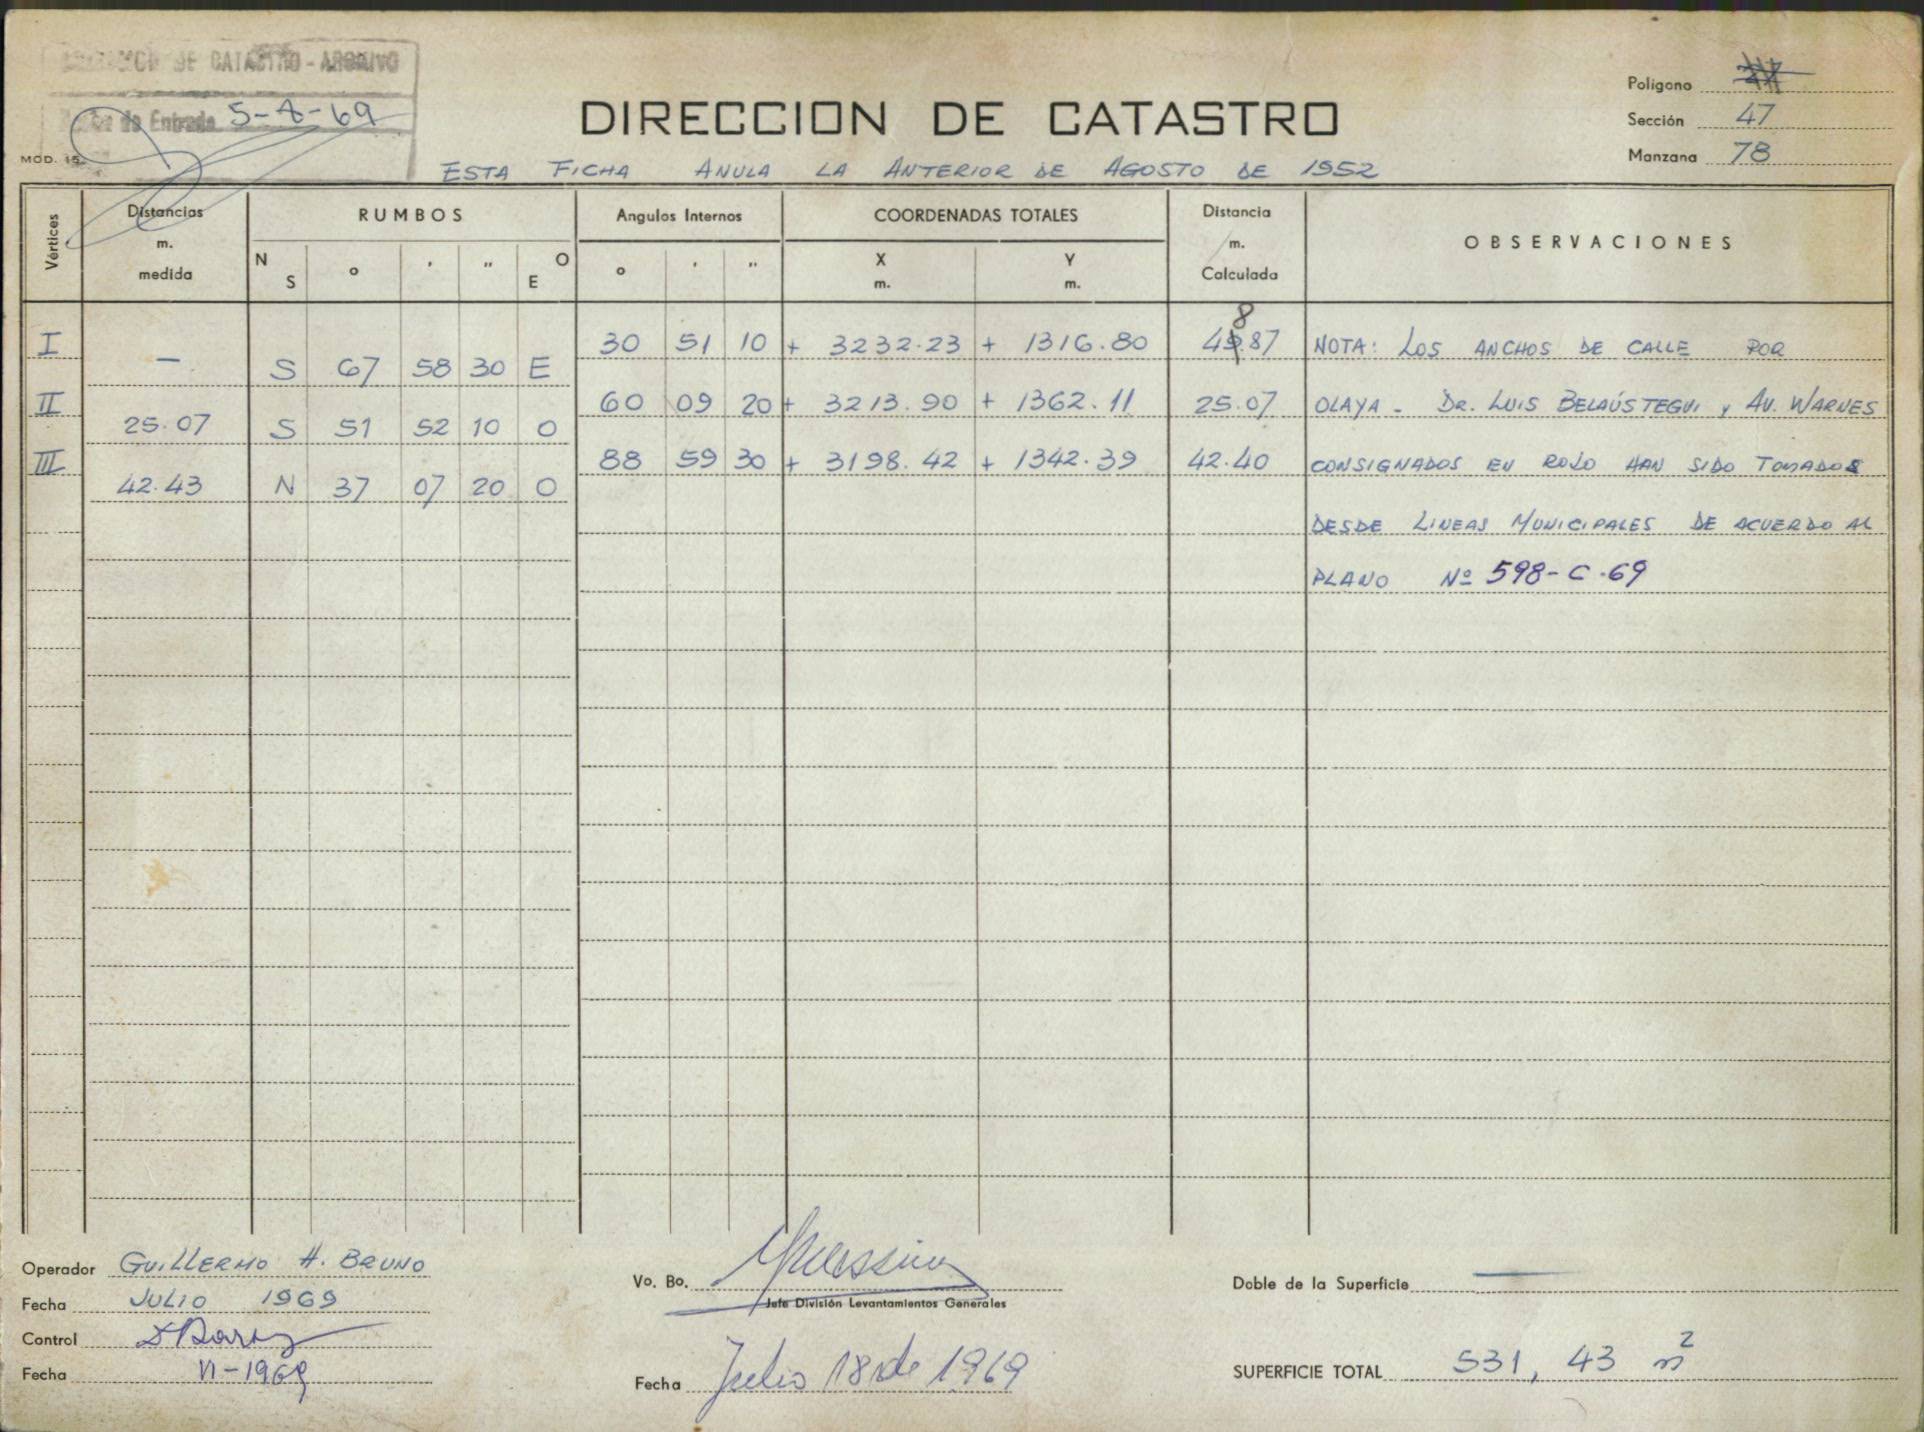 DE CATASTRO - ARCHIVO
de Entrada 5-8-69
MOD. 15
DIRECCION DE CATASTRO
Polígono
Sección 47
Manzana 78
ESTA FICHA ANULA LA ANTERIOR DE AGOSTO DE 1952
Vértices Distancias m. medida RUMBOS Angulos Internos COORDENADAS TOTALES Distancia m. Calculada OBSERVACIONES
N S o ' " O E o ' " X m. Y m.
I — S 67 58 30 E 30 51 10 + 3232.23 + 1316.80 48.87 NOTA: LOS ANCHOS DE CALLE POR
II 25.07 S 51 52 10 O 60 09 20 + 3213.90 + 1362.11 25.07 OLAYA - DR. LUIS BELAÚSTEGUI y AV. WARNES
III 42.43 N 37 07 20 O 88 59 30 + 3198.42 + 1342.39 42.40 CONSIGNADOS EN ROJO HAN SIDO TOMADOS
DESDE LINEAS MUNICIPALES DE ACUERDO AL
PLANO Nº 598-C-69
Operador GUILLERMO H. BRUNO
Fecha JULIO 1969
Control
Fecha VI-1969
Vo. Bo.
Jefe División Levantamientos Generales
Fecha Julio 18 de 1969
Doble de la Superficie —
SUPERFICIE TOTAL 531,43 m²